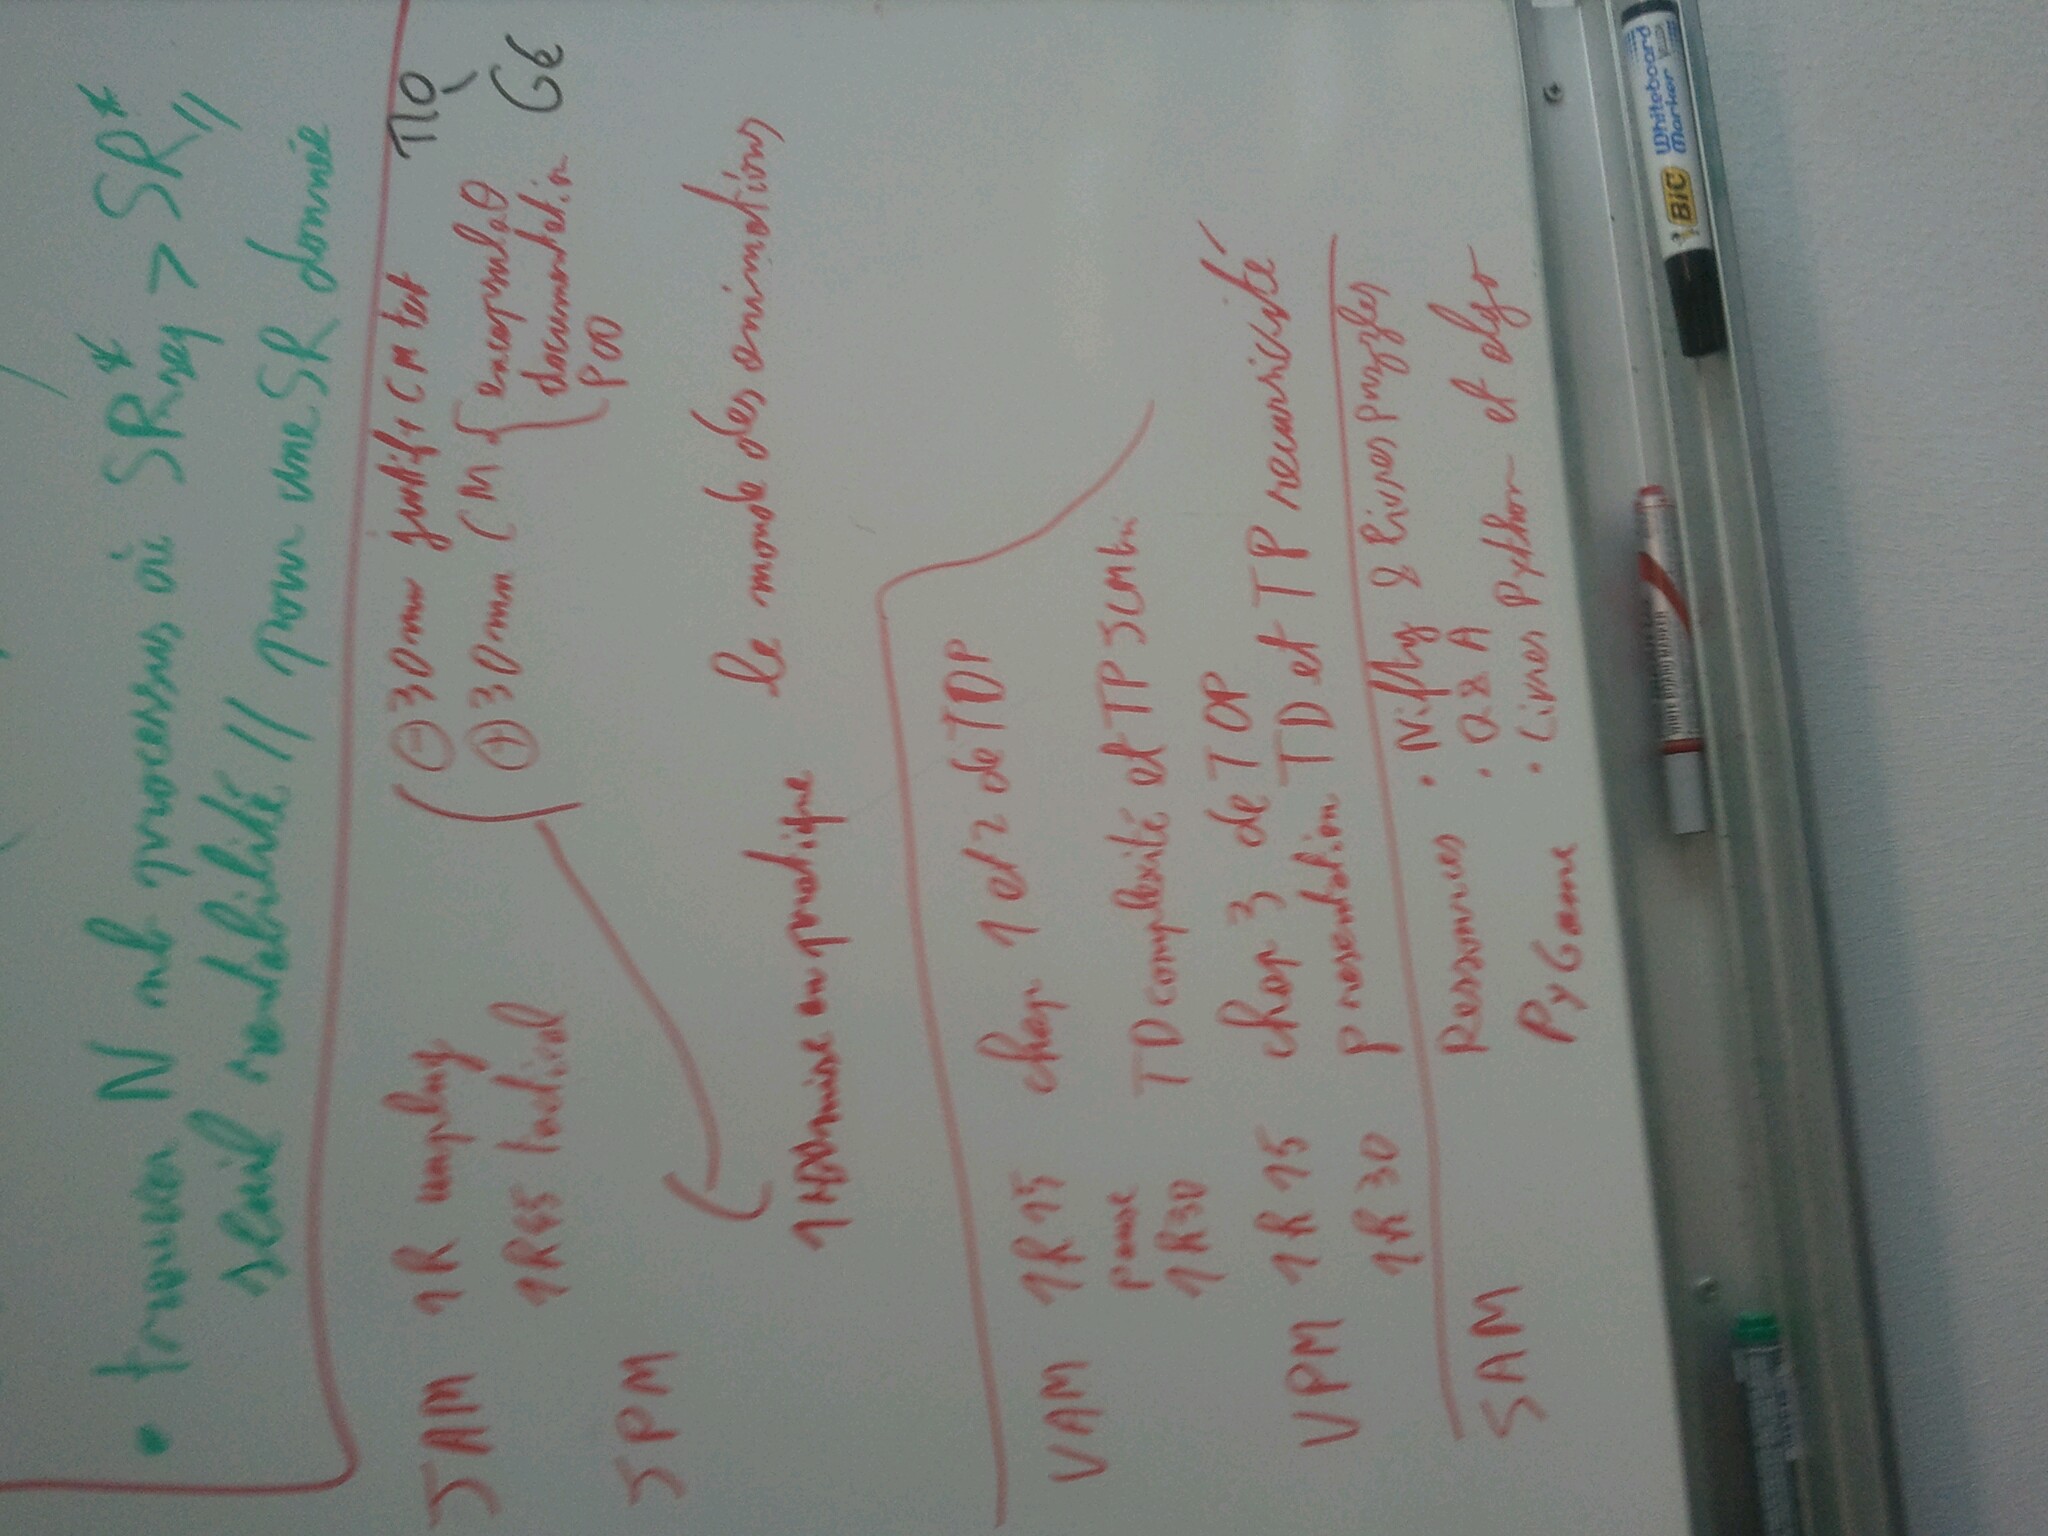 • trouver N nb processus où SR*seq > SR*//
seuil rentabilité // pour une SR donnée
JAM 1R unplug
1R45 tactical
⊖ 30mn justif + CM test
⊕ 30mn CM { encapsulatθ
documentation
POO
TIO
G€
JPM
mise en pratique
le monde des animations
VAM 1R15 chap 1 et 2 de TOP
pause
1R30 TD complexité et TP
VPM 1R15 chap 3 de TOP
1R30 presentation TD et TP recursivité
SAM Ressources • Nifty & livres puzzles
• Q & A
PyGame • Livres Python et algo
WHITE BOARD MARKER
BIC Whiteboard Marker